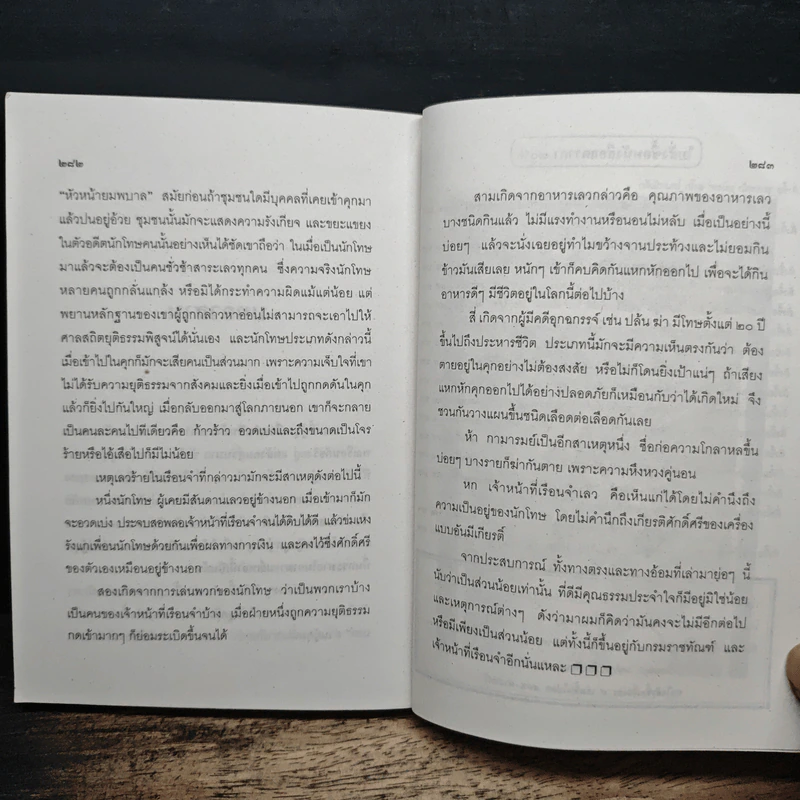 ๒๘๒
"หัวหน้ายมพบาล" สมัยก่อนถ้าชุมชนใดมีบุคคลที่เคยเข้าคุกมา
แล้วปนอยู่ด้วย ชุมชนนั้นมักจะแสดงความรังเกียจ และขยะแขยง
ในตัวอดีตนักโทษคนนั้นอย่างเห็นได้ชัดเขาถือว่า ในเมื่อเป็นนักโทษ
มาแล้วจะต้องเป็นคนชั่วช้าสาระเลวทุกคน ซึ่งความจริงนักโทษ
หลายคนถูกกลั่นแกล้ง หรือมิได้กระทำความผิดแม้แต่น้อย แต่
พยานหลักฐานของเขาผู้ถูกกล่าวหาอ่อนไม่สามารถจะเอาไปให้
ศาลสถิตยุติธรรมพิสูจน์ได้นั่นเอง และนักโทษประเภทดังกล่าวนี้
เมื่อเข้าไปในคุกก็มักจะเสียคนเป็นส่วนมาก เพราะความเจ็บใจที่เขา
ไม่ได้รับความยุติธรรมจากสังคมและยิ่งเมื่อเข้าไปถูกกดดันในคุก
แล้วก็ยิ่งไปกันใหญ่ เมื่อกลับออกมาสู่โลกภายนอก เขาก็จะกลาย
เป็นคนละคนไปทีเดียวคือ ก้าวร้าว อวดเบ่งและถึงขนาดเป็นโจร
ร้ายหรือไอ้เสือไปก็มีไม่น้อย
เหตุเลวร้ายในเรือนจำที่กล่าวมามักจะมีสาเหตุดังต่อไปนี้
หนึ่งนักโทษ ผู้เคยมีสันดานเลวอยู่ข้างนอก เมื่อเข้ามาก็มัก
จะอวดเบ่ง ประจบสอพลอเจ้าหน้าที่เรือนจำจนได้ดิบได้ดี แล้วข่มเหง
รังแกเพื่อนนักโทษด้วยกันเพื่อผลทางการเงิน และคงไว้ซึ่งศักดิ์ศรี
ของตัวเองเหมือนอยู่ข้างนอก
สองเกิดจากการเล่นพวกของนักโทษ ว่าเป็นพวกเราบ้าง
เป็นคนของเจ้าหน้าที่เรือนจำบ้าง เมื่อฝ่ายหนึ่งถูกความยุติธรรม
กดเข้ามากๆ ก็ย่อมระเบิดขึ้นจนได้
๒๘๓
สามเกิดจากอาหารเลวกล่าวคือ คุณภาพของอาหารเลว
บางชนิดกินแล้ว ไม่มีแรงทำงานหรือนอนไม่หลับ เมื่อเป็นอย่างนี้
บ่อยๆ แล้วจะนั่งเฉยอยู่ทำไมขว้างจานประท้วงและไม่ยอมกิน
ข้าวมันเสียเลย หนักๆ เข้าก็คบคิดกันแหกหักออกไป เพื่อจะได้กิน
อาหารดีๆ มีชีวิตอยู่ในโลกนี้ต่อไปบ้าง
สี่ เกิดจากผู้มีคดีอุกฉกรรจ์ เช่น ปล้น ฆ่า มีโทษตั้งแต่ ๒๐ ปี
ขึ้นไปถึงประหารชีวิต ประเภทนี้มักจะมีความเห็นตรงกันว่า ต้อง
ตายอยู่ในคุกอย่างไม่ต้องสงสัย หรือไม่ก็โดนยิงเป้าแน่ๆ ถ้าเสี่ยง
แหกหักคุกออกไปได้อย่างปลอดภัยก็เหมือนกับว่าได้เกิดใหม่ จึง
ชวนกันวางแผนขึ้นชนิดเลือดต่อเลือดกันเลย
ห้า กามารมย์เป็นอีกสาเหตุหนึ่ง ซึ่งก่อความโกลาหลขึ้น
บ่อยๆ บางรายก็ฆ่ากันตาย เพราะความหึงหวงคู่นอน
หก เจ้าหน้าที่เรือนจำเลว คือเห็นแก่ได้โดยไม่คำนึงถึง
ความเป็นอยู่ของนักโทษ โดยไม่คำนึกถึงเกียรติศักดิ์ศรีของเครื่อง
แบบอันมีเกียรติ์
จากประสบการณ์ ทั้งทางตรงและทางอ้อมที่เล่ามายุ่อๆ นี้
นับว่าเป็นส่วนน้อยเท่านั้น ที่ดีมีคุณธรรมประจำใจก็มีอยู่มิใช่น้อย
และเหตุการณ์ต่างๆ ดังว่ามาผมก็คิดว่ามันคงจะไม่มีอีกต่อไป
หรือมีเพียงเป็นส่วนน้อย แต่ทั้งนี้ก็ขึ้นอยู่กับกรมราชทัณฑ์ และ
เจ้าหน้าที่เรือนจำอีกนั่นแหละ ❒❒❒